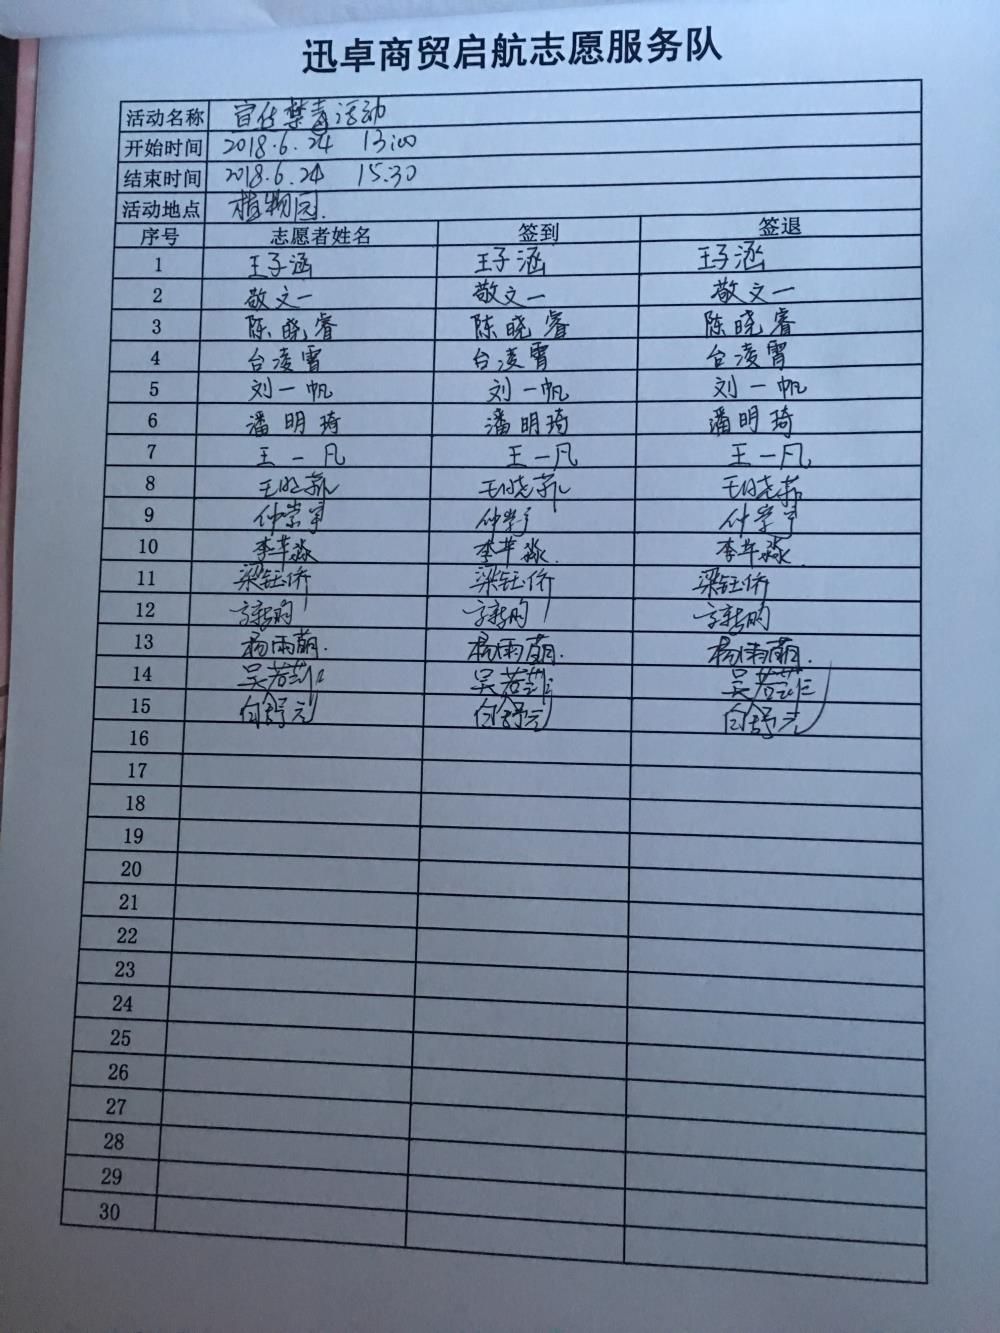 迅卓商贸启航志愿服务队
活动名称 宣传禁毒活动
开始时间 2018.6.24 13:00
结束时间 2018.6.24 15:30
活动地点 植物园.
序号 志愿者姓名 签到 签退
1 王子涵 王子涵 王子涵
2 敬文一 敬文一 敬文一
3 陈晓睿 陈晓睿 陈晓睿
4 台凌霄 台凌霄 台凌霄
5 刘一帆 刘一帆 刘一帆
6 潘明琦 潘明琦 潘明琦
7 王一凡 王一凡 王一凡
8
9
10 李芊淼 李芊淼. 李芊淼.
11 梁钰侨 梁钰侨 梁钰侨
12
13 杨雨萌. 杨雨萌. 杨雨萌.
14 吴若菲 吴若菲 吴若菲
15 白舒元 白舒元 白舒元
16
17
18
19
20
21
22
23
24
25
26
27
28
29
30